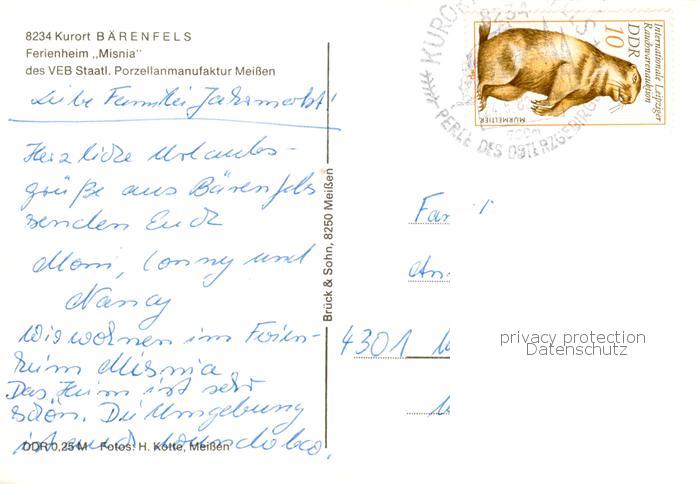 8234 Kurort BÄRENFELS
Ferienheim „Misnia"
des VEB Staatl. Porzellanmanufaktur Meißen
Liebe Familie Jahrmarkt!
Herzliche Urlaubs-
grüße aus Bärenfels
senden Euch
Moni, Conny und
Nancy
Wir wohnen im Ferien-
heim Misnia.
Das Heim ist sehr
schön. Die Umgebung
ist auch wunderbar.
DDR 0,25 M Fotos: H. Kotte, Meißen
Brück & Sohn, 8250 Meißen
8234
KURORT
PERLE DES OSTERZGEBIRGES
Internationale Leipziger
Rauchwarenauktion
DDR
10
MURMELTIER
Fam
An
4301
privacy protection
Datenschutz